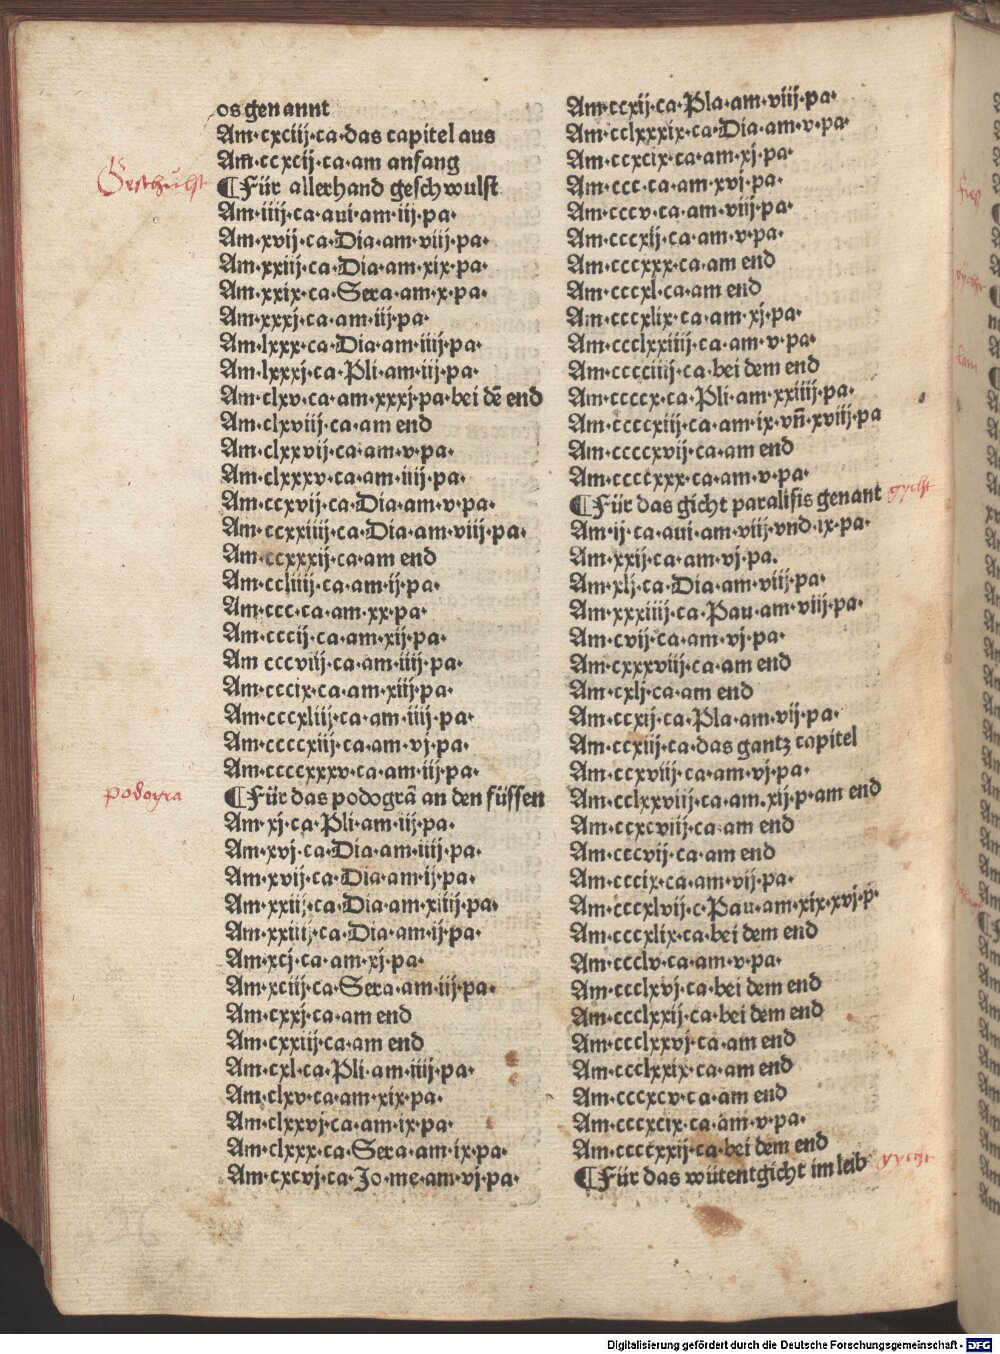 os genannt
Am·cxciij·ca·das capitel aus
Am·ccxcij·ca·am anfang
Geschulst
¶Für allerhand geschwulst
Am·iiij·ca·aui·am·iij·pa·
Am·xvij·ca·Dia·am·viij·pa·
Am·xxiij·ca·Dia·am·xix·pa·
Am·xxix·ca·Sera·am·x·pa·
Am·xxxj·ca·am·iij·pa·
Am·lxxx·ca·Dia·am·iiij·pa·
Am·lxxxj·ca·Pli·am·iij·pa·
Am·clxv·ca·am·xxxj·pa·bei dē end
Am·clxviij·ca·am end
Am·clxxvij·ca·am·v·pa·
Am·clxxxv·ca·am·iiij·pa·
Am·ccxvij·ca·Dia·am·v·pa·
Am·ccxxiiij·ca·Dia·am·viij·pa·
Am·ccxxxij·ca·am end
Am·ccliiij·ca·am·ij·pa·
Am·ccc·ca·am·xx·pa·
Am·cccij·ca·am·xij·pa·
Am cccviij·ca·am·iiij·pa·
Am·cccix·ca·am·xiij·pa·
Am·cccxliij·ca·am·iiij·pa·
Am·ccccxiij·ca·am·vj·pa·
Am·ccccxxxv·ca·am·iij·pa·
podogra
¶Für das podogrā an den füssen
Am·xj·ca·Pli·am·iij·pa·
Am·xvj·ca·Dia·am·iiij·pa·
Am·xvij·ca·Dia·am·ij·pa·
Am·xxiij·ca·Dia·am·xiiij·pa·
Am·xxiiij·ca·Dia·am·ij·pa·
Am·xcj·ca·am·xj·pa·
Am·xciij·ca·Sera·am·iij·pa·
Am·cxxj·ca·am end
Am·cxxiij·ca·am end
Am·cxl·ca·Pli·am·iiij·pa·
Am·clxv·ca·am·xix·pa·
Am·clxxvj·ca·am·ix·pa·
Am·clxxx·ca·Sera·am·ix·pa·
Am·cxcvj·ca·Jo·me·am·vj·pa·
Am·ccxij·ca·Pla·am·viij·pa·
Am·cclxxxix·ca·Dia·am·v·pa·
Am·ccxcix·ca·am·xj·pa·
Am·ccc·ca·am·xvj·pa·
Am·cccv·ca·am·viij·pa·
Am·cccxij·ca·am·v·pa·
Am·cccxxx·ca·am end
Am·cccxl·ca·am end
Am·cccxlix·ca·am·xj·pa·
Am·ccclxxiiij·ca·am·v·pa·
Am·cccciiij·ca·bei dem end
Am·ccccx·ca·Pli·am·xxiiij·pa·
Am·ccccxiij·ca·am·ix·vñ·xviij·pa
Am·ccccxvij·ca·am end
Am·ccccxxx·ca·am·v·pa·
¶Für das gicht paralisis genant
gycht
Am·ij·ca·aui·am·viij·vnd·ix·pa·
Am·xxij·ca·am·vj·pa.
Am·xlj·ca·Dia·am·viij·pa·
Am·xxxiiij·ca·Pau·am·viij·pa·
Am·cvij·ca·am·vj·pa·
Am·cxxxviij·ca·am end
Am·cxlj·ca·am end
Am·ccxij·ca·Pla·am·vij·pa·
Am·ccxiij·ca·das gantz capitel
Am·ccxviij·ca·am·vj·pa·
Am·cclxxviij·ca·am·xij·p·am end
Am·ccxcviij·ca·am end
Am·cccvij·ca·am end
Am·cccix·ca·am·vij·pa·
Am·cccxlvij·c·Pau·am·xix·xvj·p·
Am·cccxlix·ca·bei dem end
Am·ccclv·ca·am·v·pa·
Am·ccclxvj·ca·bei dem end
Am·ccclxxij·ca·bei dem end
Am·ccclxxvj·ca·am end
Am·ccclxxix·ca·am end
Am·cccxcv·ca·am end
Am·cccxcix·ca·am·v·pa·
Am·ccccxxij·ca·bei dem end
¶Für das wütentgicht im leib
gycht
Digitalisierung gefördert durch die Deutsche Forschungsgemeinschaft - DFG